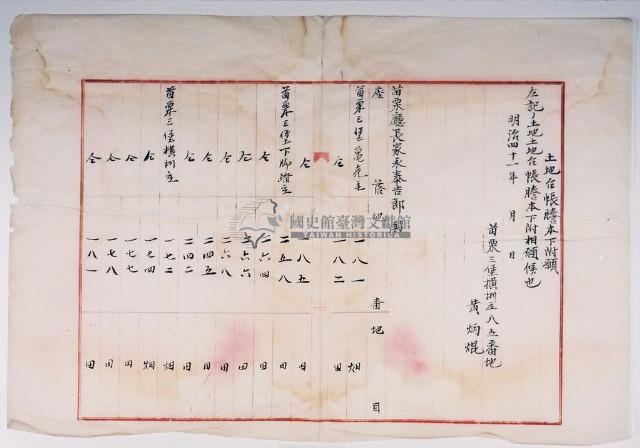 土地台帳謄本下附願
左記ノ土地土地台帳謄本下附相願候也
明治四十一年 月 日
苗栗三堡横圳庄八五番地
黃炳焜
苗栗廳長家永泰吉郎殿
座落地 番地 目
苗栗三堡 庄 一八一 畑
仝 一八二 田
仝 八五 田
苗栗三堡下脚踏庄 二五八 田
仝 二六四 田
仝 二六六 田
仝 二六八 田
仝 二四五 田
仝 二四二 田
苗栗三堡横圳庄 一七二 畑
仝 一七四 畑
仝 一七七 田
仝 一七八 田
仝 一八一 田
國史館臺灣文獻館
TAIWAN HISTORICA